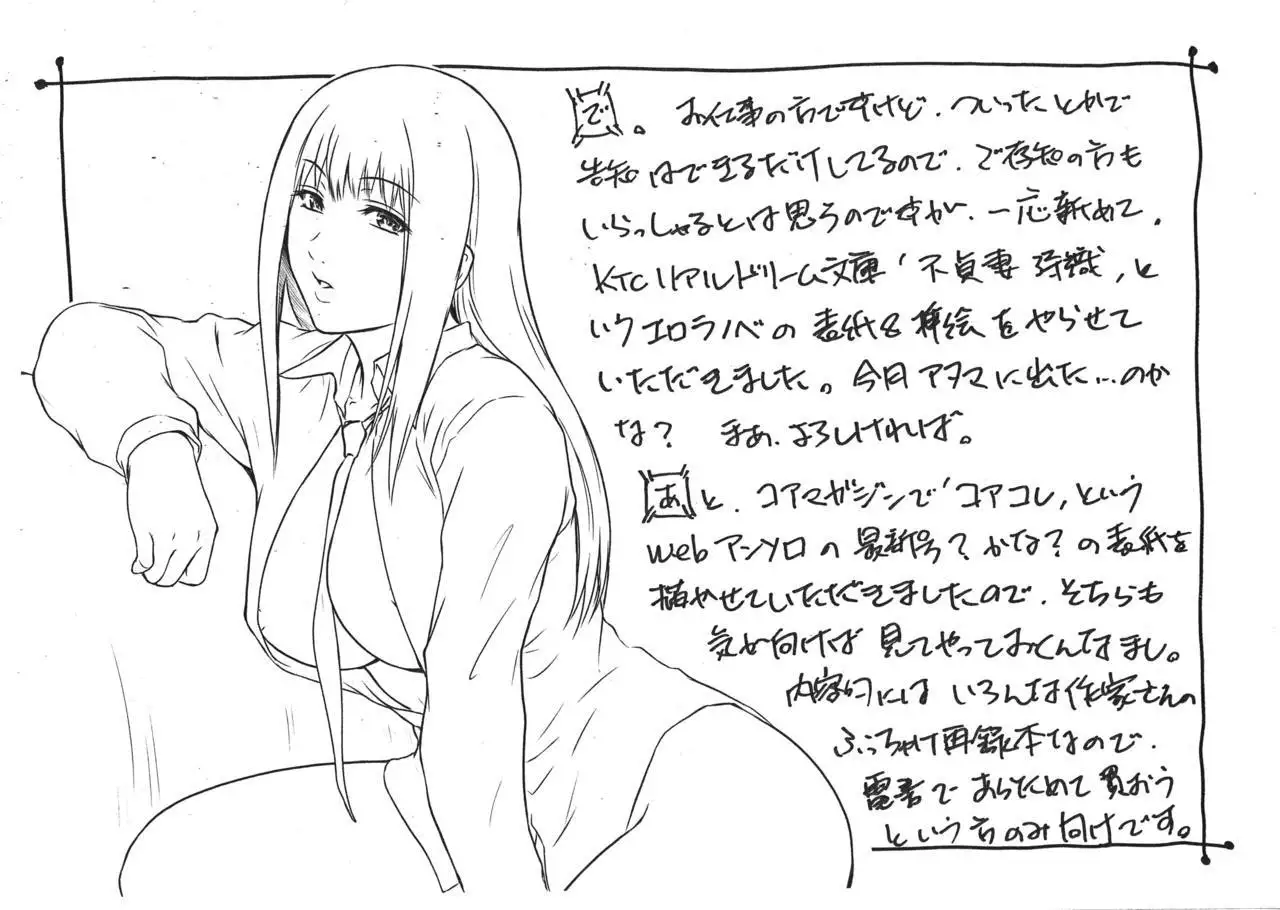 で。お仕事の方ですけど、ついったとかで
告知はできるだけしてるので、ご存知の方も
いらっしゃるとは思うのですが、一応新めて。
KTCリアルドリーム文庫「不貞妻 弥織」と
いうエロラノベの表紙&挿絵をやらせて
いただきました。今日アマに出た…のか
な? まあ、よろしければ。
あと、コアマガジンで「コアコレ」という
webアンソロの最新号?かな?の表紙を
描かせていただきましたので、そちらも
気が向けば見てやっておくんなまし。
内容的にはいろんな作家さんの
ぶっちゃけ再録本なので、
電書であらためて買おう
という方のみ向けです。